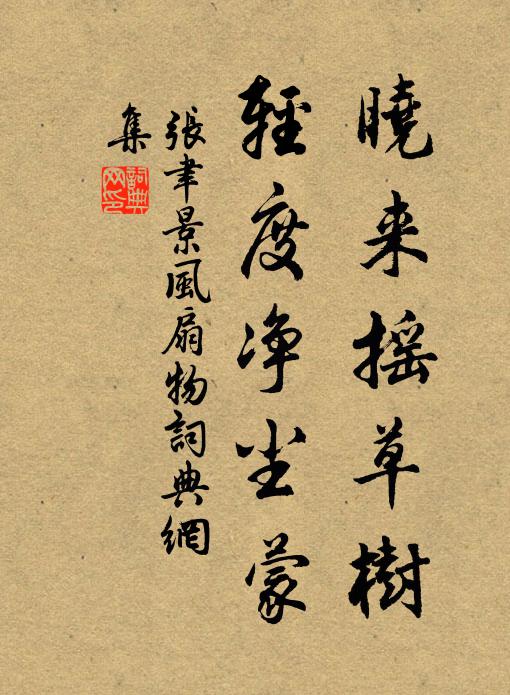 曉来摇草樹
輕度净尘蒙
張聿景風扇物詞典網
集
詞典
网印